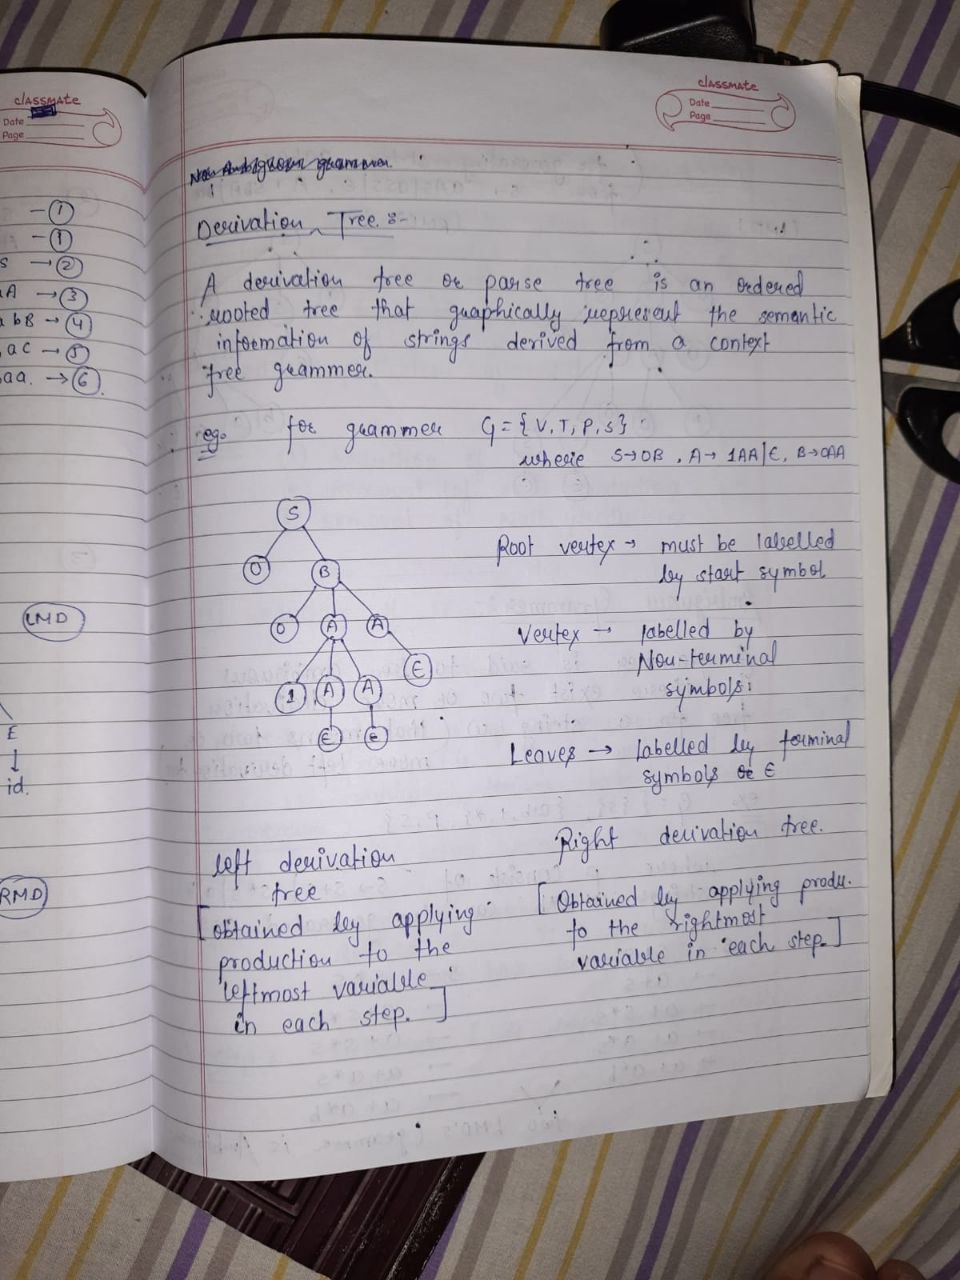 classmate
Date
Page
- 1
- 1
s → 2
A → 3
bB → 4
ac → 5
aa. → 6
LMD
E
↓
id.
RMD
classmate
Date
Page
Derivation Tree :-
A derivation tree or parse tree is an ordered
rooted tree that graphically represent the semantic
information of strings derived from a context
free grammer.
eg. for grammer G = { V, T, P, S }
where S→0B, A→ 1AA|ε, B→0AA
S
0 B
0 A A
1 A A ε
ε ε
Root vertex → must be labelled
by start symbol
Vertex → labelled by
Non-terminal
symbols.
Leaves → labelled by terminal
symbols or ε
left derivation
tree
[obtained by applying
production to the
leftmost variable
in each step.]
Right derivation tree.
[Obtained by applying produ.
to the rightmost
variable in each step.]